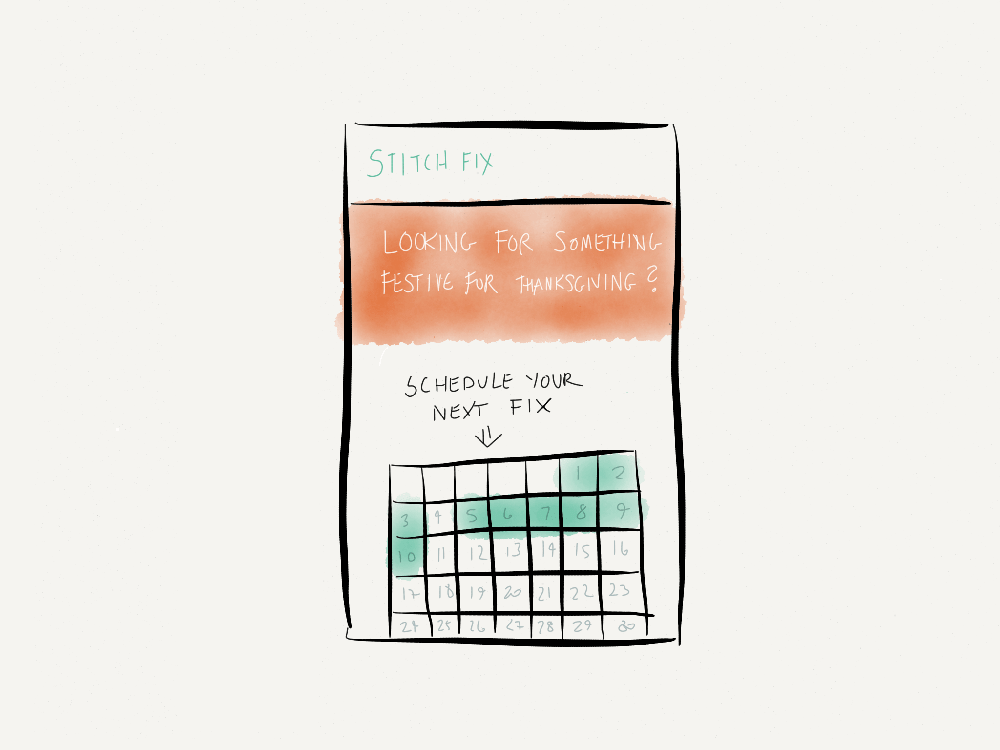 STITCH FIX
LOOKING FOR SOMETHING
FESTIVE FOR THANKSGIVING?
SCHEDULE YOUR
NEXT FIX
1 2
3 4 5 6 7 8 9
10 11 12 13 14 15 16
17 18 19 20 21 22 23
24 25 26 27 28 29 30